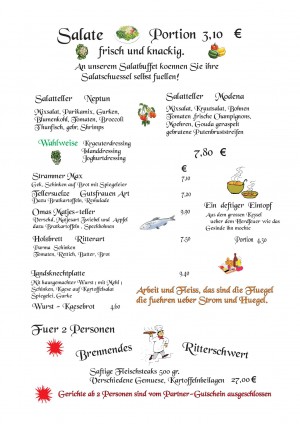 Salate Portion 3,10 €
frisch und knackig.
An unserem Salatbuffet koennen Sie ihre
Salatschuessel selbst fuellen!
Salatteller Neptun
Mixsalat, Parikamix, Gurken,
Blumenkohl, Tomaten, Broccoli
Thunfisch, gebr. Shrimps
Salatteller Modena
Mixsalat, Krautsalat, Bohnen
Tomaten frische Champignons,
Moehren, Gouda geraspelt
gebratene Putenbruststreifen
Wahlweise Kraeuterdressing
Islanddressing
Joghurtdressing
7,80 €
€
Strammer Max 7,10
Gek. Schinken auf Brot mit Spiegeleier
Tellersuelze Gutsfrauen Art 7,20
Dazu Bratkartoffeln, Remulade
Omas Matjes-teller
Verschd. Matjesart Zwiebel und Aepfel
dazu Bratkartoffeln, Speckbohnen
Holzbrett Ritterart 9,20
Parma Schinken
Tomaten, Rettich, Butter, Brot
Ein deftiger Eintopf
Aus dem grossen Kessel
ueber dem Herdfeuer wie das
Gesinde ihn mochte
Portion 4,50
Landsknechtplatte 9,40
Mit hausgemachter Wurst ( Mohl )
Schinken, Kaese auf Kartoffelsalat
Spiegelei, Gurke
Wurst - Kaesebrot
Arbeit und Fleiss, das sind die Fluegel
die fuehren ueber Strom und Huegel.
Fuer 2 Personen
Brennendes Ritterschwert
Saftige Fleischsteaks 500 gr.
Verschiedene Gemuese, Kartoffelnbeilagen 27,00 €
Gerichte ab 2 Personen sind vom Partner-Gutschein ausgeschlossen